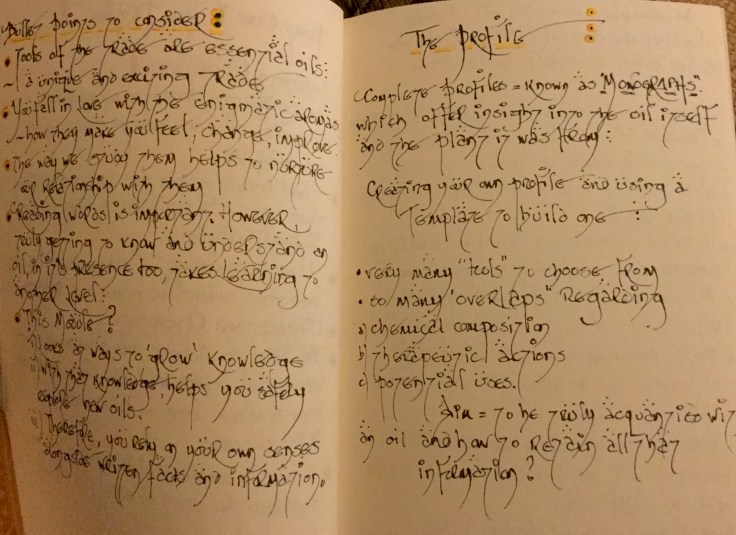 Bullet points to consider:
• Tools of the trade are essential oils:
~ a unique and exciting trade
• You fall in love with the enigmatic aromas
~ how they make you feel, change, improve.
• The way we study them helps to nurture
our relationship with them
• Reading words is important. However
truly getting to know and understand an
oil, in it's presence too, takes learning to
another level:
• This Module?
i) looks at ways to 'grow' knowledge
ii) with that knowledge, helps you safely
explore new oils.
iii) Therefore, you rely on your own senses
alongside writen facts and information.
The Profile
Complete profiles = known as "Monographs"
which offer insight into the oil itself
and the plant it was from:
Creating your own profile and using a
template to build one:
• very many "tools" to choose from
• so many 'overlaps" regarding
a) chemical composition
b) therapeutic actions
c) potential uses.
Aim = to be truly acquantied wit
an oil and how to retain all that
information?